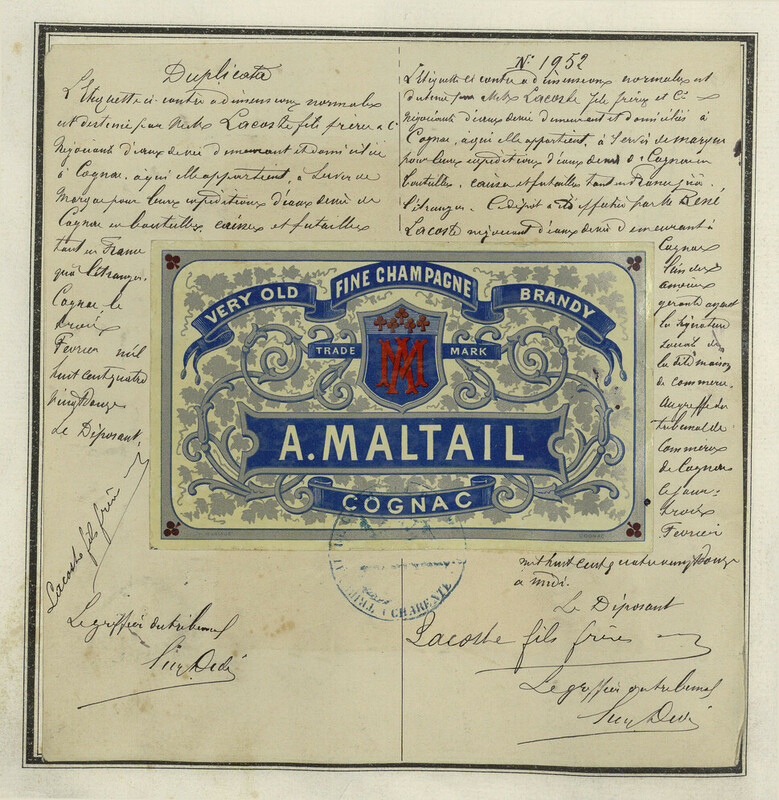 Duplicata
L'Etiquette ci contre a dimensions normales
est destinée par M.M. Lacoste fils frères & Cie
Négociants d'eaux de vie demeurant et domiciliés
à Cognac, à qui elle appartient, à servir de
Marque pour leurs expéditions d'eaux de vie de
Cognac en bouteilles, caisses et futailles
tant en France
qu'à l'étranger.
Cognac le
trois
Fevrier mil
huit cent quatre
vingt douze
Le Déposant,
Lacoste fils frères
Le greffier du tribunal
No 1952
L'Etiquette ci contre a dimensions normales est
destinée par M.M. Lacoste fils frères et Cie
négociants d'eaux de vie demeurant et domiciliés à
Cognac, à qui elle appartient, à servir de marque
pour leurs expéditions d'eaux de vie de Cognac en
bouteilles, caisses et futailles tant en France qu'à
l'étranger. Ce dépôt a été effectué par M. René
Lacoste négociant d'eaux de vie demeurant à
Cognac
l'un des
gérants ayant
la signature
sociale de
la dite maison
de commerce.
Au greffe du
tribunal de
commerce
de Cognac
le jour
trois
Fevrier
mil huit cent quatre vingt douze
a midi.
Le Déposant
Lacoste fils frères
Le greffier du tribunal
VERY OLD FINE CHAMPAGNE BRANDY
TRADE MARK
AM
A. MALTAIL
COGNAC
CHARENTE